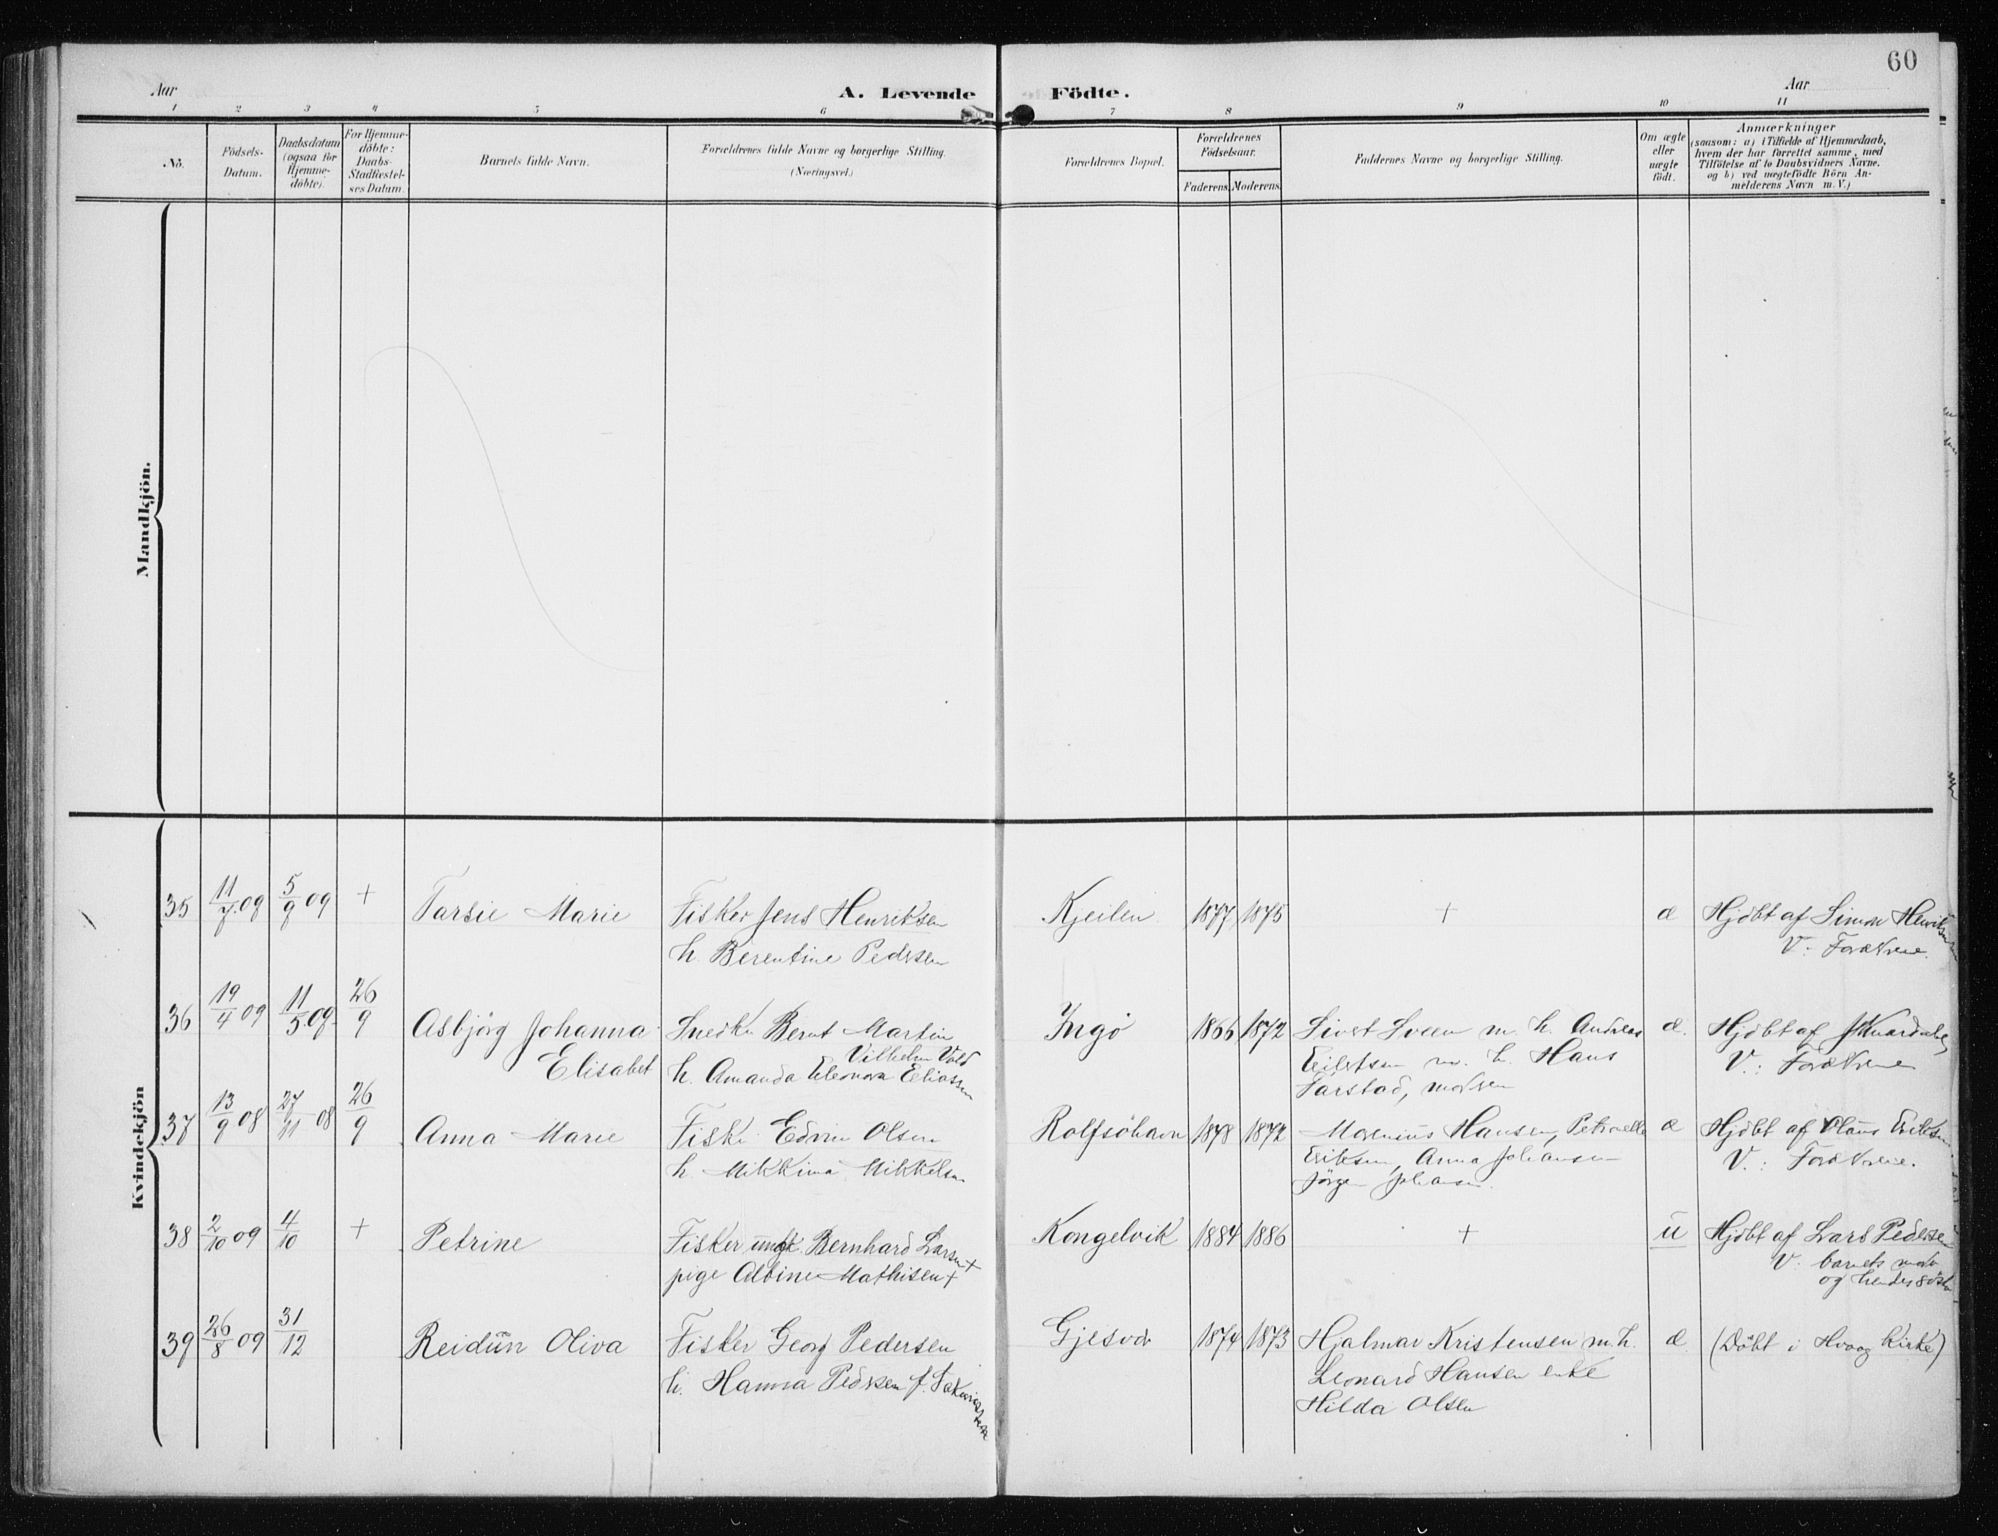 60
Aar
A. Levende
Födte.
Aar
1 2 3 4 5 6 7 8 9 10 11
No.
Födsels-
Datum.
Daabsdatum
(ogsaa for
Hjemme-
döbte).
For Hjemme-
döbte:
Daabs-
Stadfæstel-
ses Datum.
Barnets fulde Navn.
Forældrenes fulde Navne og borgerlige Stilling.
(Næringsvei.)
Forældrenes Bopæl.
Forældrenes
Födselsaar.
Faderens. Moderens.
Faddernes Navne og borgerlige Stilling.
Om ægte
eller
uægte
födt.
Anmærkninger
(saasom: a) i Tilfælde af Hjemmedaab,
hvem der har forrettet samme, med
Tilföielse af to Daabsvidners Navne.
og b) ved uægtefödte Börn An-
melderens Navn m. V.)
Mandkjön.
Kvindekjön
35 11/7 09 5/9 09 + Tarsie Marie Fisker Jens Henriksen Kjeilen 1877 1875 + æ Hjdöbt af Simon Henriksen
h. Berentine Pedersen V. Forældrene
36 19/4 09 11/5 09 26/9 Asbjörg Johanna Snedker Bernt Martin Ingö 1866 1872 Sivert Sveen m. h. Andreas æ. Hjdöbt af
Elisabet Vilhelm Vold Eilertsen m. h. Hans V.: Forældrene
h. Amanda Eleonora Eliassen Sarstad, moren
37 13/9 08 27/11 08 26/9 Anna Marie Fisker Edvin Olsen Rolfsöhavn 1878 1872 Morenius Hansen, Petronelle æ Hjdöbt af Olaus Eriksen
h. Mikkina Mikkelsen Eriksen, Anna Johansen V.: Forældrene.
Jörgen Johansen.
38 2/10 09 4/10 + Petrine Fisker ungk. Bernhard Larsen + Kongelvik 1884 1886 + u Hjdöbt af Lars Pedersen
pige Albine Mathisen + V: barnets mor
og hendes söster
39 26/8 09 31/12 Reidun Oliva Fisker Georg Pedersen Gjesvær 1874 1873 Hjalmar Kristensen m. h. æ. (Döbt i Hvaag Kirke)
h. Hanna Pedersen f. Leonard Hansen enke
Hilda Olsen